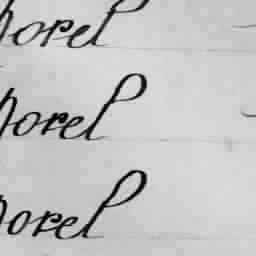 orel
orel
orel